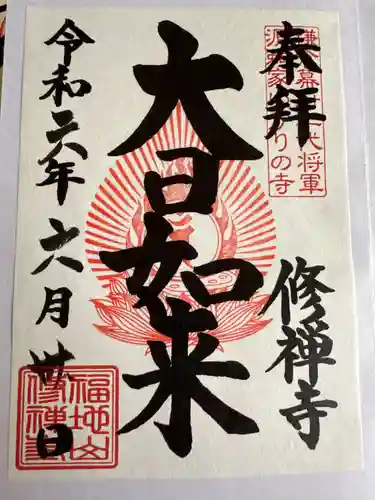 奉拝
鎌倉幕府二代将軍
源頼家ゆかりの寺
修禅寺
大日如来
令和六年六月卅日
福地山
修禅寺